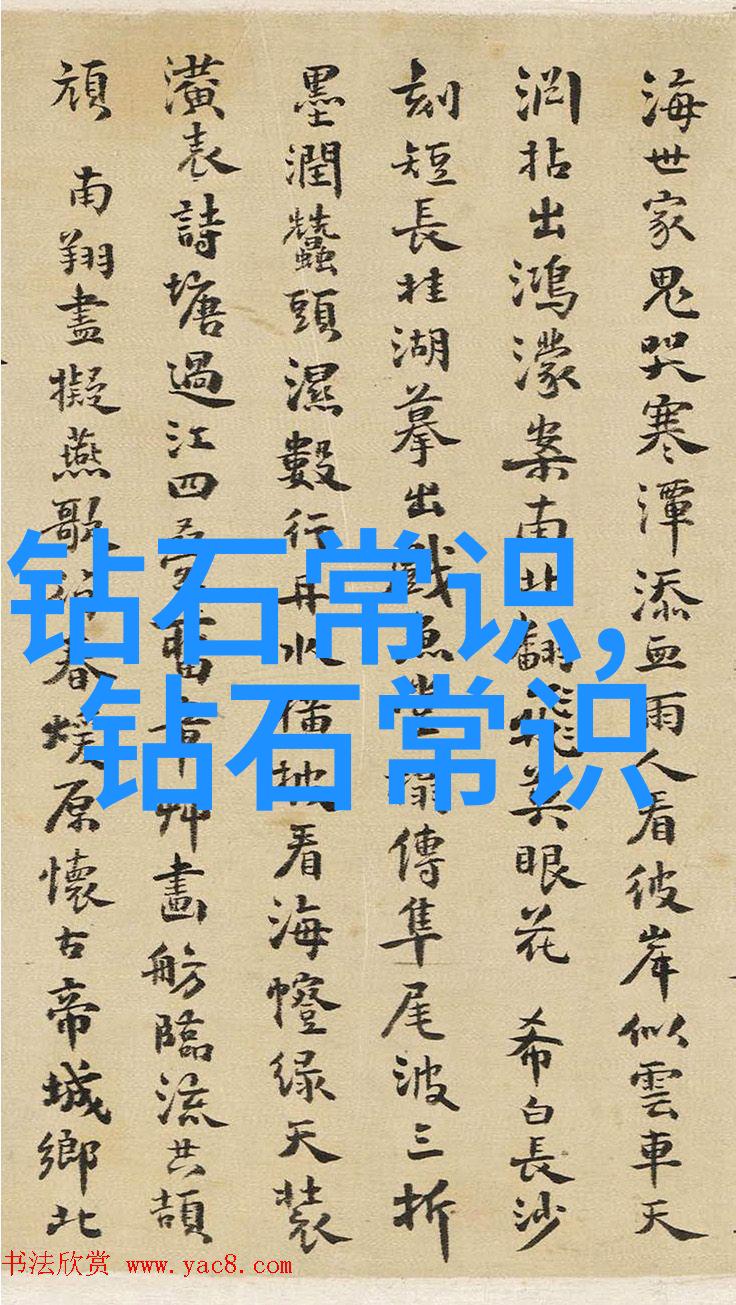 钻石常识,
钻石常识
海世家鬼哭寒潭添血雨人看彼岸似雲車天
拈出鴻濛案南北翻飛英眼花 希白長沙
刻短長桂湖摹出戲魚傳隼尾波三折
墨潤蠶頭濕數行再看海幢綠天裝
潢表詩塘過江四舊章艸畫舫臨流共頡
頏 南翔盡擬燕歌春原懷古帝城鄉北
书法欣赏 www.yac8.com